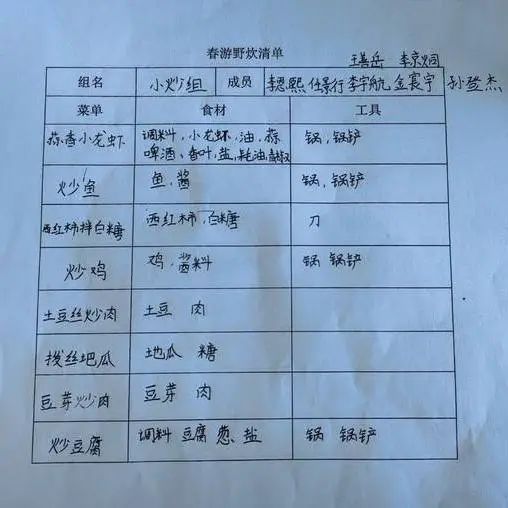 春游野炊清单
王善岳 李京炯
组名 小炒组 成员 李思熙 任景行 李宇航 金宸宇 孙登杰
菜单 食材 工具
蒜香小龙虾 调料,小龙虾,油,蒜 锅,锅铲
啤酒、香叶,盐,耗油
炒鱼 鱼,酱 锅,锅铲
西红柿拌白糖 西红柿,白糖 刀
炒鸡 鸡,酱料 锅 锅铲
土豆丝炒肉 土豆 肉
拔丝地瓜 地瓜 糖
豆芽炒肉 豆芽 肉
炒豆腐 调料 豆腐 葱、盐 锅 锅铲